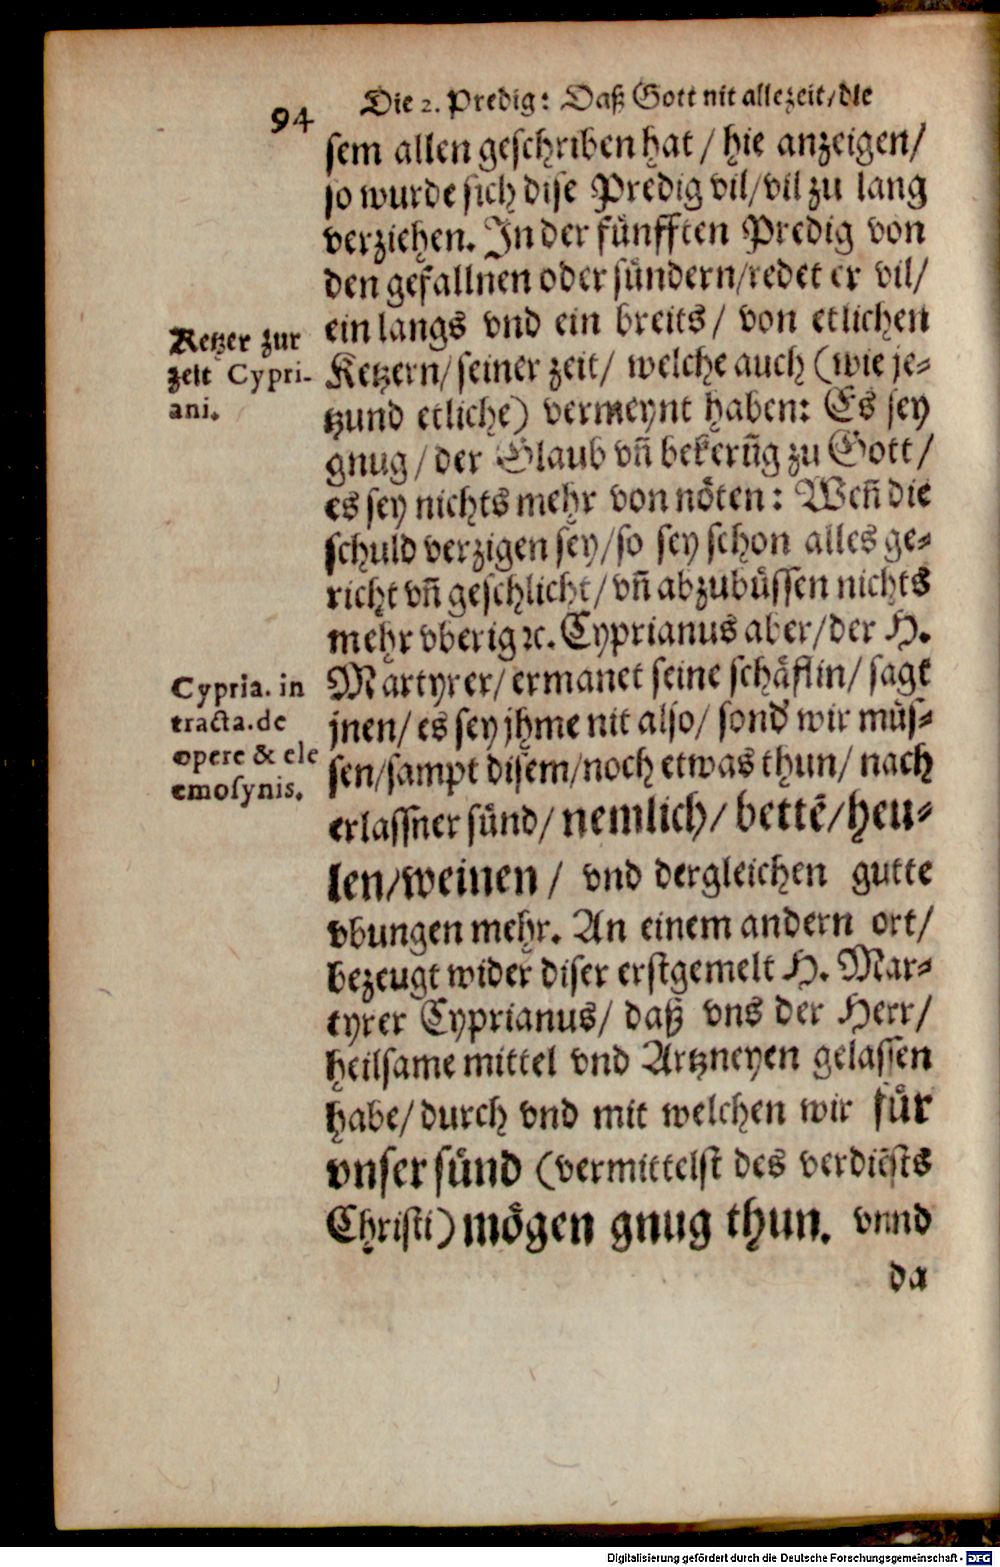 94
Die 2. Predig: Daß Gott nit allezeit/die
sem allen geschriben hat / hie anzeigen/
so wurde sich dise Predig vil/vil zu lang
verziehen. In der fünfften Predig von
den gefallnen oder sündern/redet er vil/
ein langs vnd ein breits / von etlichen
Ketzer zur
zeit Cypri-
ani.
Ketzern/seiner zeit/ welche auch (wie je-
tzund etliche) vermeynt haben: Es sey
gnug/der Glaub vñ bekerũg zu Gott/
es sey nichts mehr von nöten: Weñ die
schuld verzigen sey/so sey schon alles ge-
richt vñ geschlicht/vñ abzubüssen nichts
mehr vberig ꝛc. Cyprianus aber/der H.
Cypria. in
tracta.de
opere & ele
emosynis.
Martyrer/ermanet seine schäflin/ sagt
jnen/ es sey jhme nit also/ sond' wir müs-
sen/sampt disem/noch etwas thun/ nach
erlassner sünd/ nemlich/ bettẽ/heu-
len/weinen / vnd dergleichen gutte
vbungen mehr. An einem andern ort/
bezeugt wider diser erstgemelt H. Mar-
tyrer Cyprianus/ daß vns der Herr/
heilsame mittel vnd Artzneyen gelassen
habe/durch vnd mit welchen wir für
vnser sünd (vermittelst des verdiẽsts
Christi) mögen gnug thun. vnnd
da
Digitalisierung gefördert durch die Deutsche Forschungsgemeinschaft - DFG